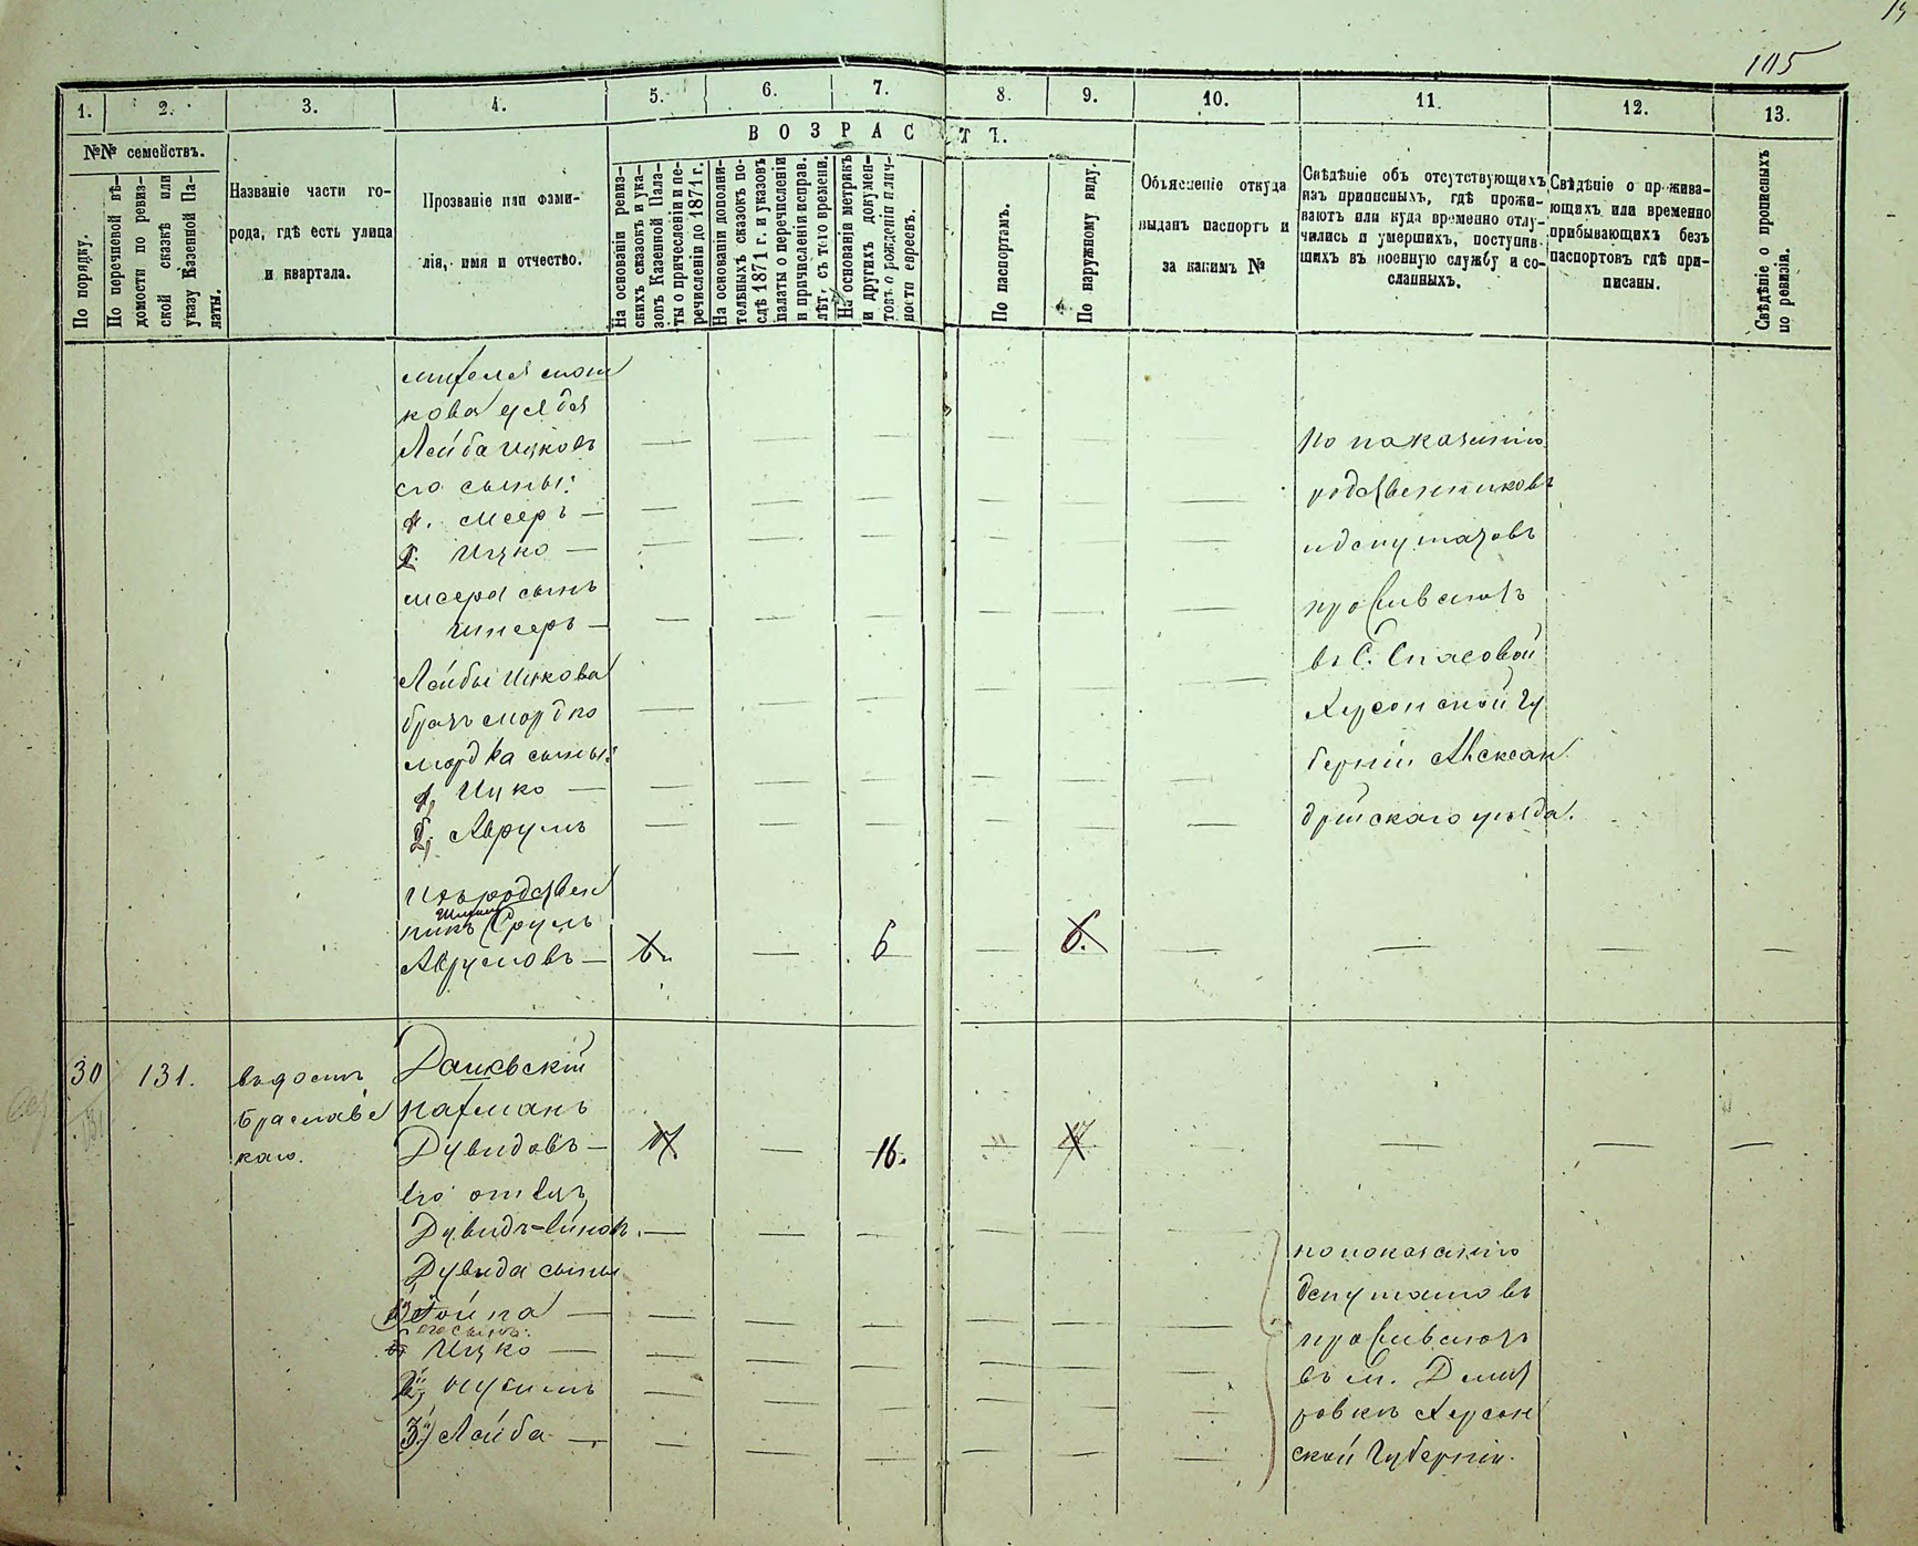 105
1. 2. 3. 4. 5. 6. 7. 8. 9. 10. 11. 12. 13.
В О З Р А С Т Ъ.
№№ семействъ.
По порядку.
По перечневой вѣ-
домости по ревиз-
ской сказкѣ или
указу Казенной Па-
латы.
Названіе части го-
рода, гдѣ есть улица
и квартала.
Прозваніе или фами-
лія, имя и отчество.
На основаніи ревиз-
скихъ сказокъ и ука-
зовъ Казенной Пала-
ты о причисленіи и пе-
речисленіи до 1871 г.
На основаніи дополни-
тельныхъ сказокъ по-
слѣ 1871 г. и указовъ
палаты о перечисленіи
и причисленіи исправ.
лѣт. съ того времени.
На основаніи метрикъ
и другихъ докумен-
товъ о рожденіи лич-
ности евреевъ.
По паспортамъ.
По наружному виду.
Объясненіе откуда
выданъ паспортъ и
за какимъ №
Свѣдѣніе объ отсутствующихъ
изъ приписныхъ, гдѣ прожи-
ваютъ или куда временно отлу-
чились и умершихъ, поступив-
шихъ въ военную службу и со-
сланныхъ.
Свѣдѣніе о прожива-
ющихъ или временно
прибывающихъ безъ
паспортовъ гдѣ при-
писаны.
Свѣдѣніе о прописныхъ
по ревизіи.
кова
Лейба Ицковъ
его сыны:
1. Мееръ —
2. Ицко —
Меера сынъ
Лейбы Ицкова
братъ Мордко
Мордка сыны:
1, Ицко —
2, Аврумъ
по показанію
родственниковъ
и депутатовъ
проживаютъ
въ С. Спасовой
Херсонской Гу
берніи Алексан
дрійскаго уѣзда.
Ихъ родствен
никъ Сруль
Аврумовъ — 6. — 6 — 6. — — — —
30 131.
Брацлавс
каго.
Рашковскій
Нахманъ
Дувидовъ — 17. — 16. — 17. — — —
Его отецъ
Дувидъ
Дувида сыны
1) Гойна —
его сынъ:
Ицко —
2)
3) Лейба —
по показанію
депутатовъ
проживаютъ
въ м. Дмит
ровкѣ Херсон
ской Губерніи.